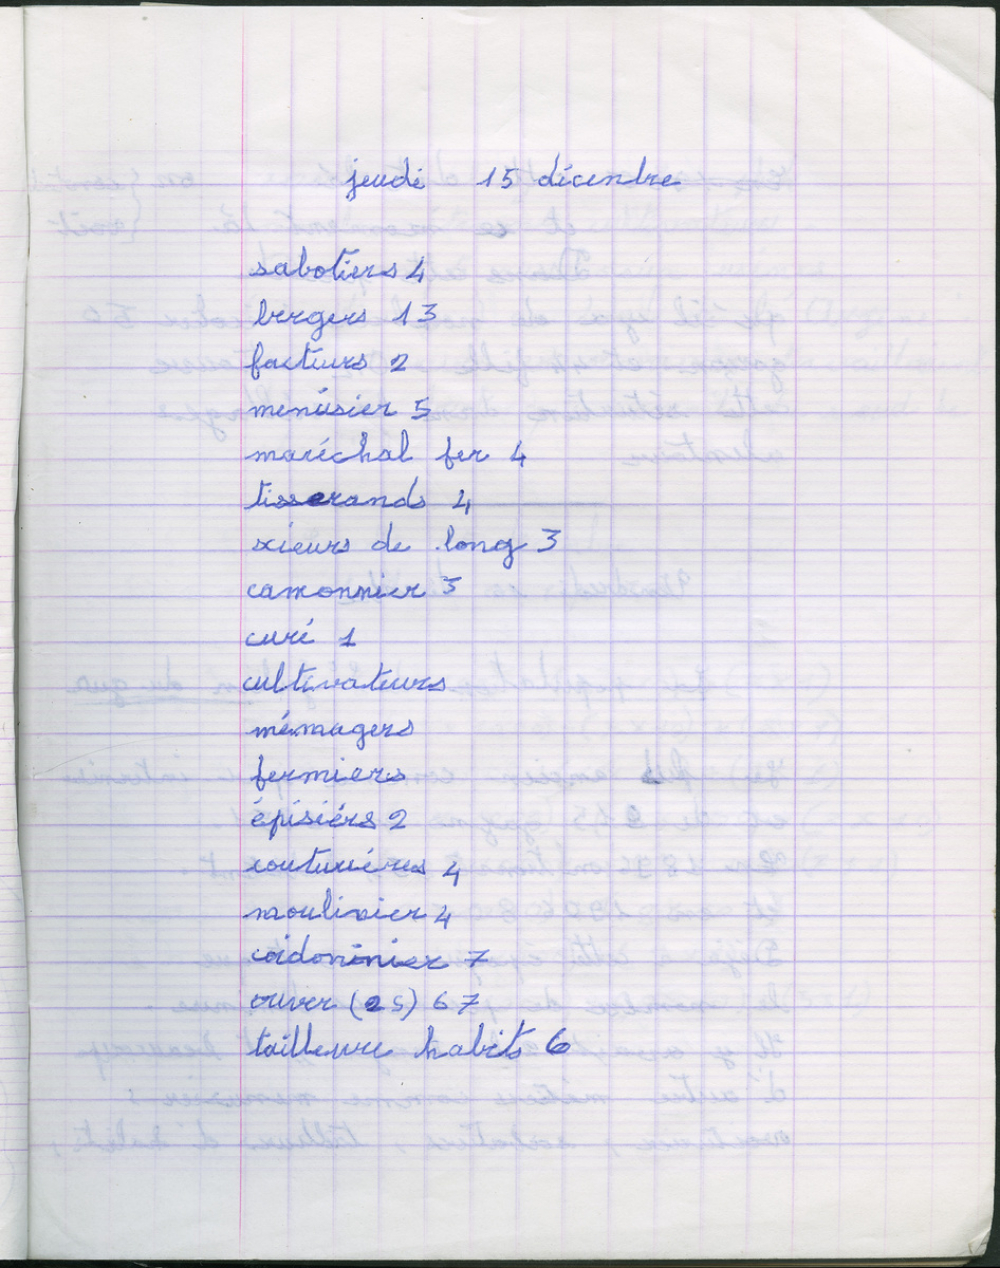 jeudi 15 décembre
sabotiers 4
bergers 13
facteurs 2
menusier 5
maréchal fer 4
tisserands 4
scieurs de long 3
camonnier 3
curé 1
cultivateurs
ménagers
fermiers
épisiérs 2
couturiéres 4
moulinier 4
cordonnnier 7
ouvrer (es) 67
tailleure habits 6